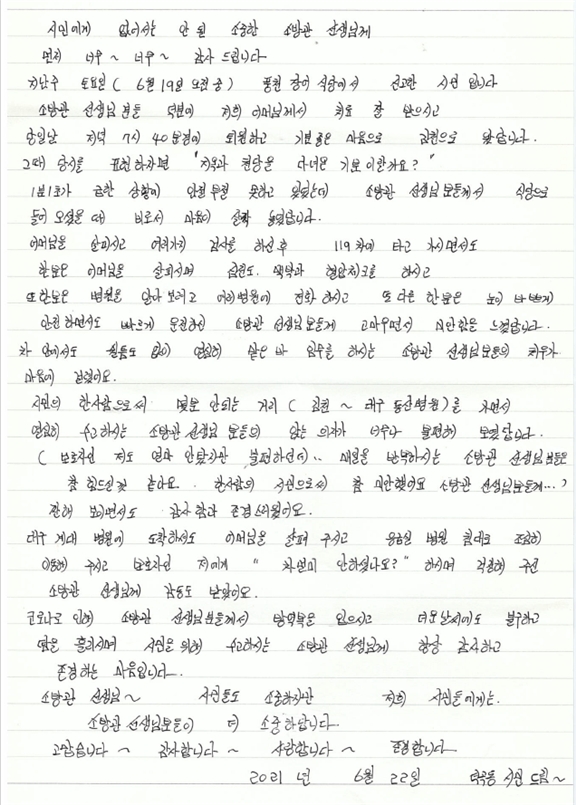 시민에게 없어서는 안 될 소중한 소방관 선생님께
먼저 너무~ 너무~ 감사 드립니다
지난주 토요일 ( 6월 19일 오전 중 ) 장어 식당에서 신고한 시민 입니다
소방관 선생님 분들 덕분에 저희 어머님께서 치료 잘 받으시고
당일날 저녁 7시 40분경에 퇴원하고 기분좋은 마음으로 김천으로 왔습니다.
그때 당시를 표현하자면 "지옥과 천당을 다녀온 기분 이랄까요?"
1분1초가 급한 상황에 안절부절 못하고 있었는데 소방관 선생님 분들께서 식당으로
들어 오셨을 때 비로서 마음이 살짝 놓였답니다.
어머님을 살피시고 여러가지 검사를 하신 후 119차에 타고 가시면서도
한분은 어머님을 살피시며 심전도, 맥박과 혈압체크를 하시고
또 한분은 병원을 알아 보려고 여러병원에 전화 하시고 또 다른 한분은 눈이 바쁘게
안전하면서도 빠르게 운전하신 소방관 선생님분들께 고마우면서 미안함을 느꼈답니다.
차 안에서도 쉴틈도 없이 열심히 맡은 바 임무를 하시는 소방관 선생님분들의 처우가
마음에 걸렸어요.
시민의 한사람으로써 몇분 안되는 거리 ( 김천 ~ 대구 동산병원 )를 가면서
열심히 수고하시는 소방관 선생님 분들의 앉는 의자가 너무나 불편해 보였답니다.
( 보호자인 저도 얼마 안탔지만 불편하던데.. 매일을 반복하시는 소방관 선생님분들은
참 힘드실것 같아요. 한사람의 시민으로써 참 미안했어요 소방관 선생님분들께...)
보이면서도 감사함과 존경스러웠어요.
대구 계대 병원에 도착하셔도 어머님을 살펴 주시고 응급실 병원 침대로 조심히
이동해 주시고 보호자인 저에게 " 차멀미 안하셨나요?" 하시며 걱정해 주신
소방관 선생님께 감동도 받았어요.
코로나로 인해 소방관 선생님분들께서 방역복을 입으시고 더운날씨에도 불구하고
땀을 흘리시며 시민을 위해 수고하시는 소방관 선생님께 항상 감사하고
존경하는 마음입니다.
소방관 선생님~ 시민들도 소중하지만 저희 시민들에게는.
소방관 선생님분들이 더 소중하답니다.
고맙습니다 ~ 감사합니다 ~ 사랑합니다 ~ 존경합니다.
2021 년 6월 22일 덕곡동 시민 드림~